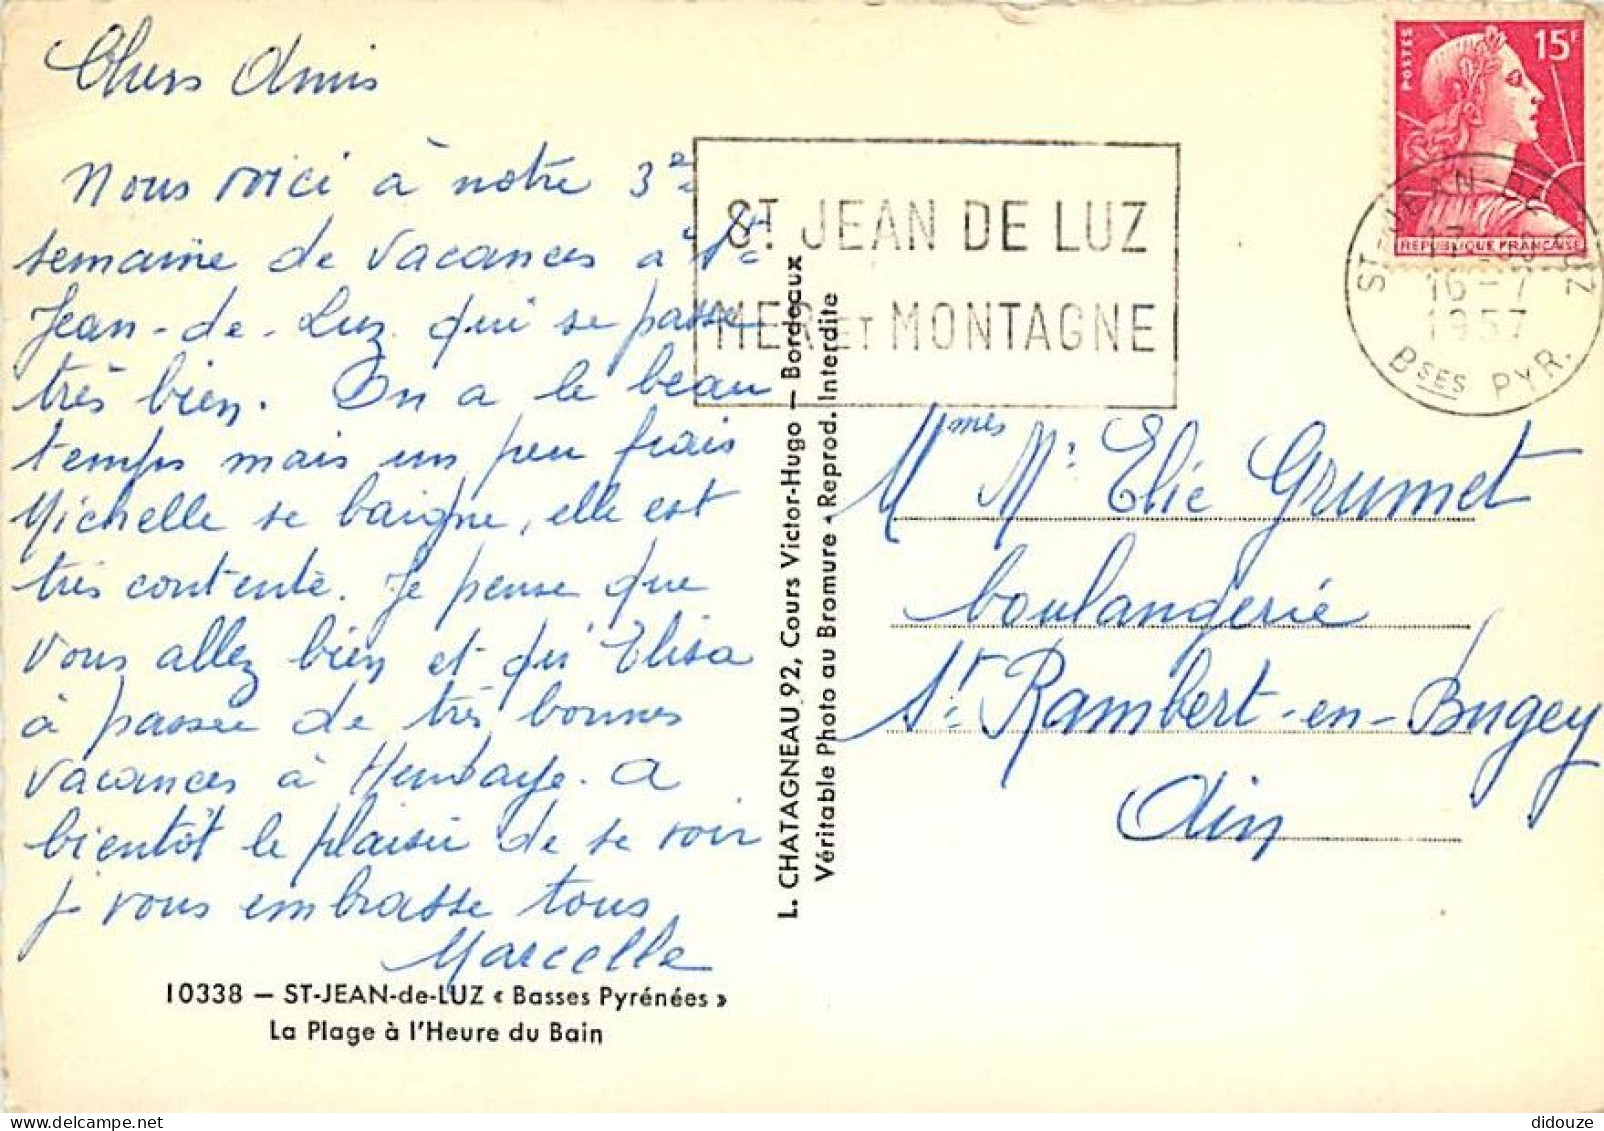 Chers Amis
Nous voici à notre 3e
semaine de vacances à St
Jean-de-Luz qui se passe
très bien. On a le beau
temps mais un peu frais
Michelle se baigne, elle est
très contente. Je pense que
vous allez bien et qu'Elisa
à passée de très bonnes
vacances à Hendaye. A
bientôt le plaisir de se voir
je vous embrasse tous
Marcelle
10338 — ST-JEAN-de-LUZ « Basses Pyrénées »
La Plage à l'Heure du Bain
L. CHATAGNEAU 92, Cours Victor-Hugo — Bordeaux
Véritable Photo au Bromure - Reprod. Interdite
ST JEAN DE LUZ
MER ET MONTAGNE
POSTES
15F
REPUBLIQUE FRANÇAISE
ST-JEAN-DE-LUZ
16-7
1957
Bses PYR.
Mmes Mr Elie Grumet
boulangerie
St Rambert-en-Bugey
Ain
didouze